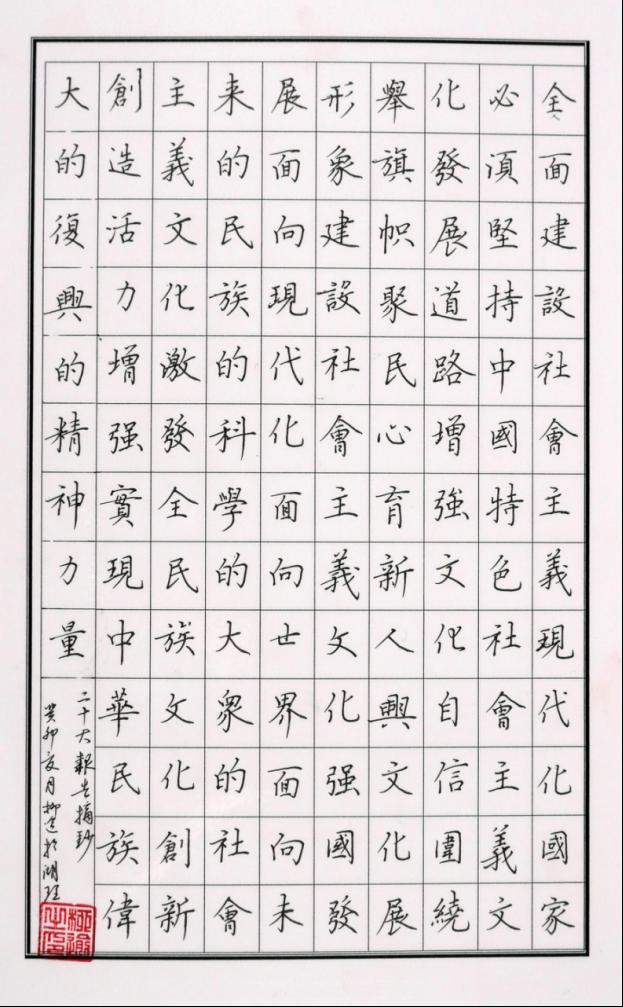 全面建設社會主義現代化國家
必須堅持中國特色社會主義文
化發展道路增強文化自信圍繞
舉旗幟聚民心育新人興文化展
形象建設社會主義文化强國發
展面向現代化面向世界面向未
来的民族的科學的大衆的社會
主義文化激發全民族文化創新
創造活力增强實現中華民族偉
大的復興的精神力量
二十大報告摘鈔
癸卯亥月柳於湖